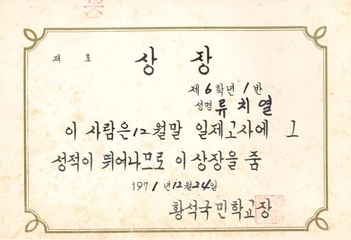 제 호
상 장
제 6 학년 1 반
성명 류치열
이 사람은 12월말 일제고사에 그
성적이 뛰어나므로 이 상장을 줌
1971년 12월 24일
황석국민학교장